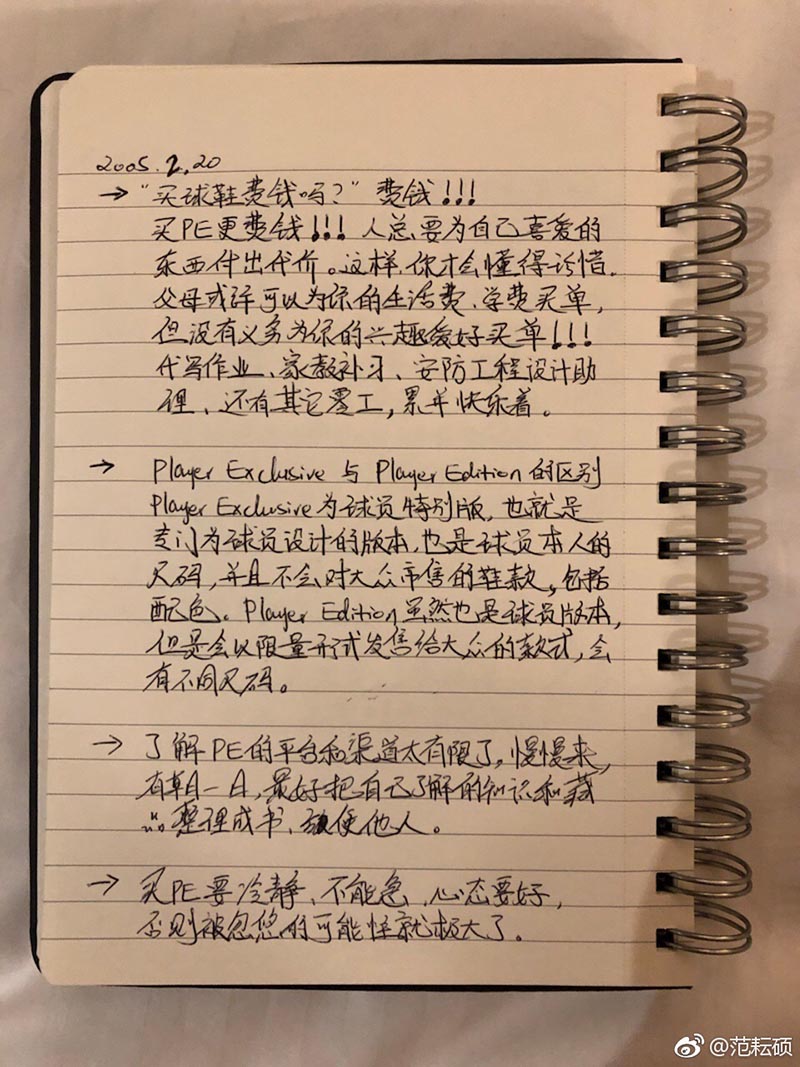 2005.2.20
→ “买球鞋费钱吗?” 费钱!!!
买PE更费钱!!! 人总要为自己喜爱的
东西付出代价。这样,你才会懂得珍惜.
父母或许可以为你的生活费、学费买单,
但没有义务为你的兴趣爱好买单!!!
代写作业、家教补习、安防工程设计助
理、还有其它零工,累并快乐着。
→ Player Exclusive 与 Player Edition 的区别
Player Exclusive 为球员特别版,也就是
专门为球员设计的版本,也是球员本人的
尺码,并且不会对大众市售的鞋款,包括
配色。Player Edition 虽然也是球员版本,
但是会以限量形式发售给大众的款式,会
有不同尺码。
→ 了解PE的平台和渠道太有限了,慢慢来,
有朝一日,最好把自己了解的知识和藏
品整理成书、方便他人。
→ 买PE要冷静、不能急、心态要好,
否则被忽悠的可能性就极大了。
@范耘硕